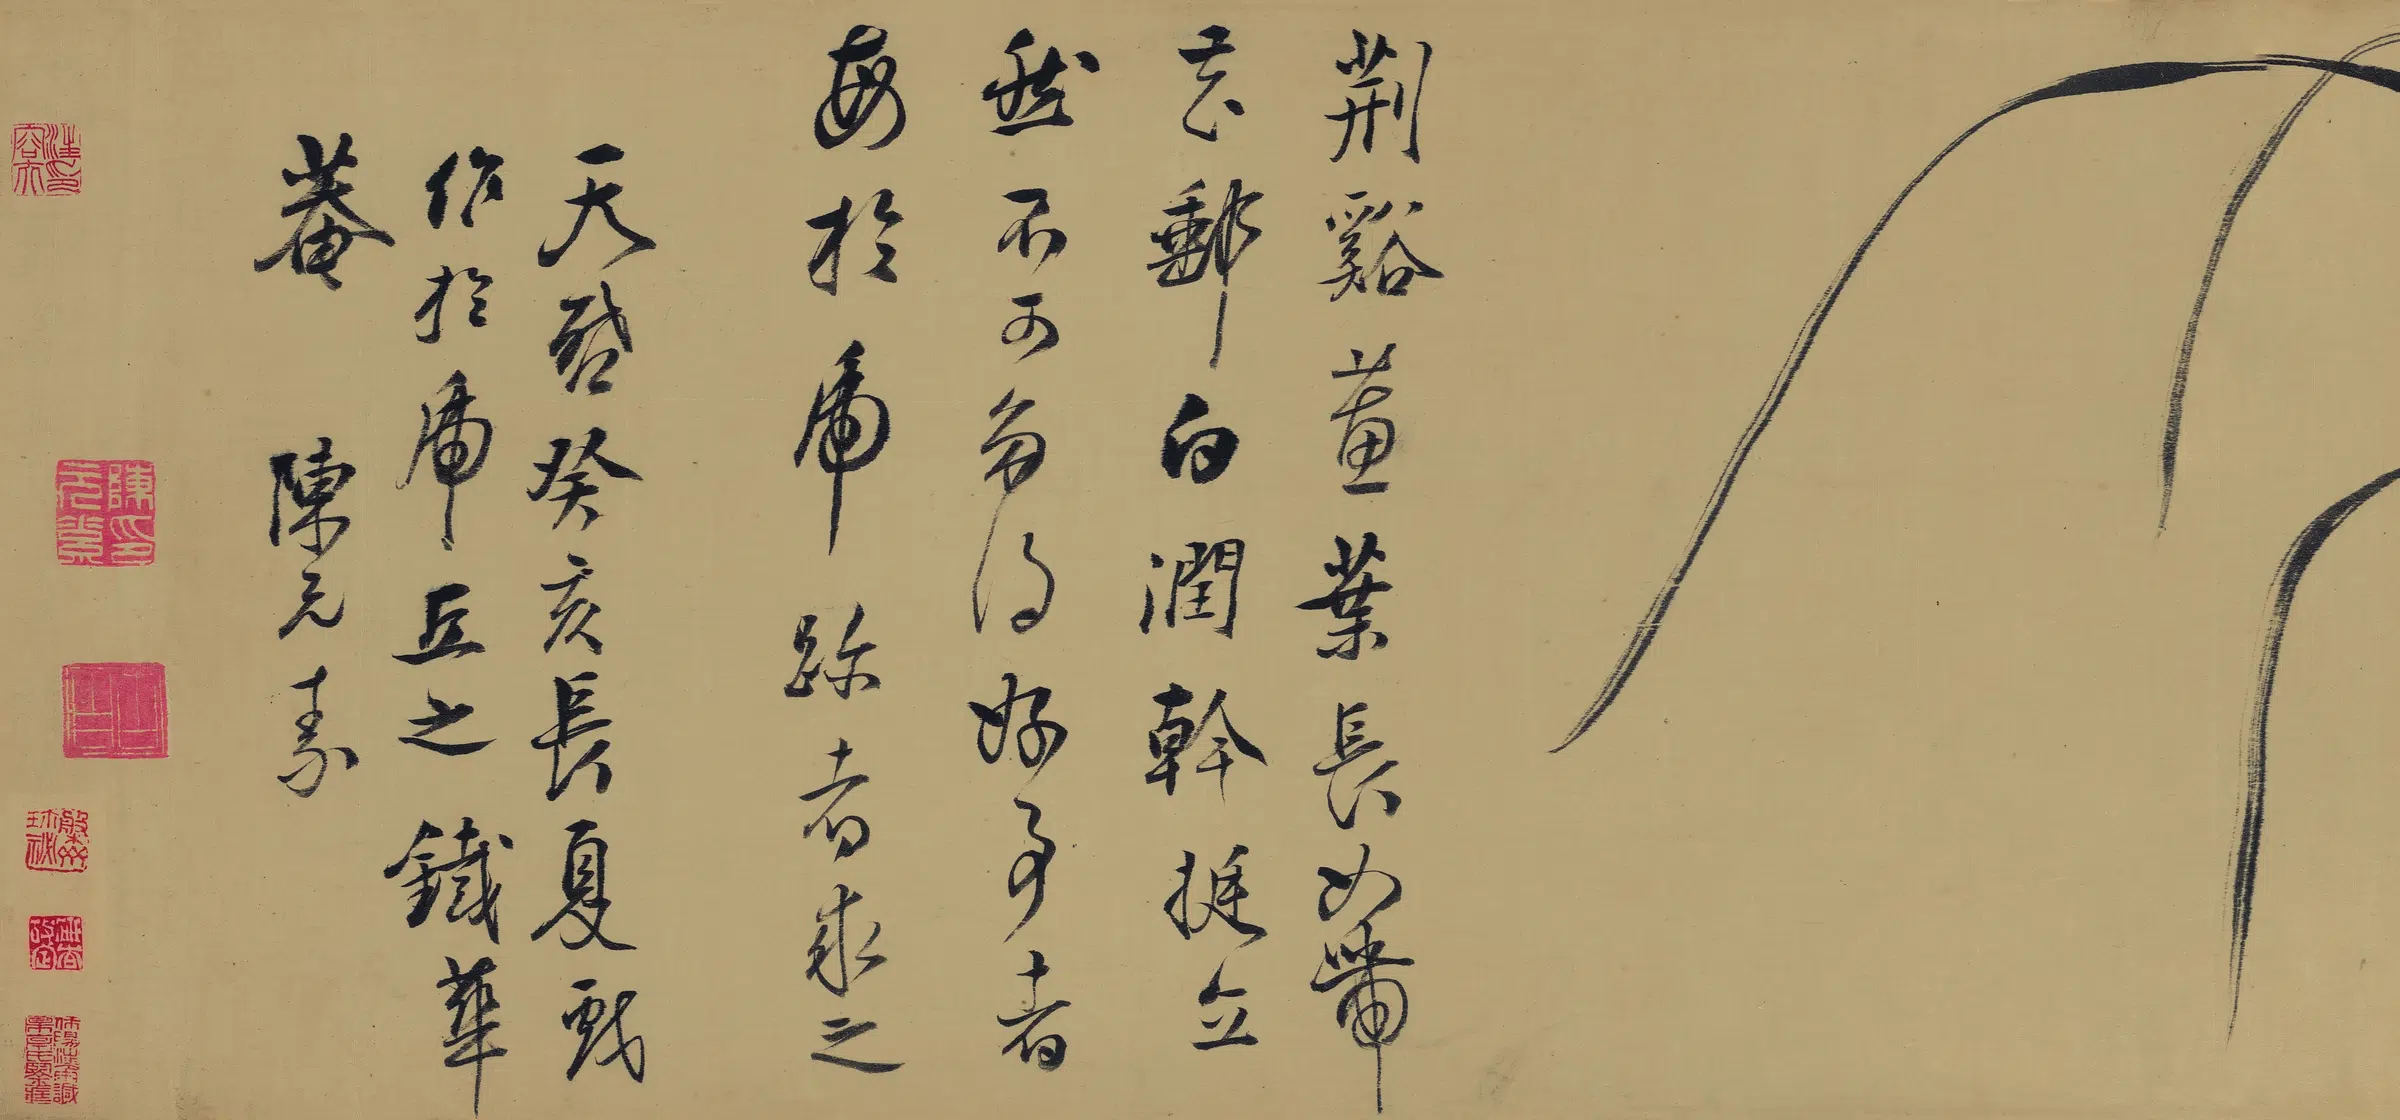 荊谿蕙葉長如帶
花郵白潤幹挺立
然不可多得好事者
每於虎跡者求之
天啓癸亥長夏戲
作於虎丘之鐵華
菴　陳元素
陳元素印